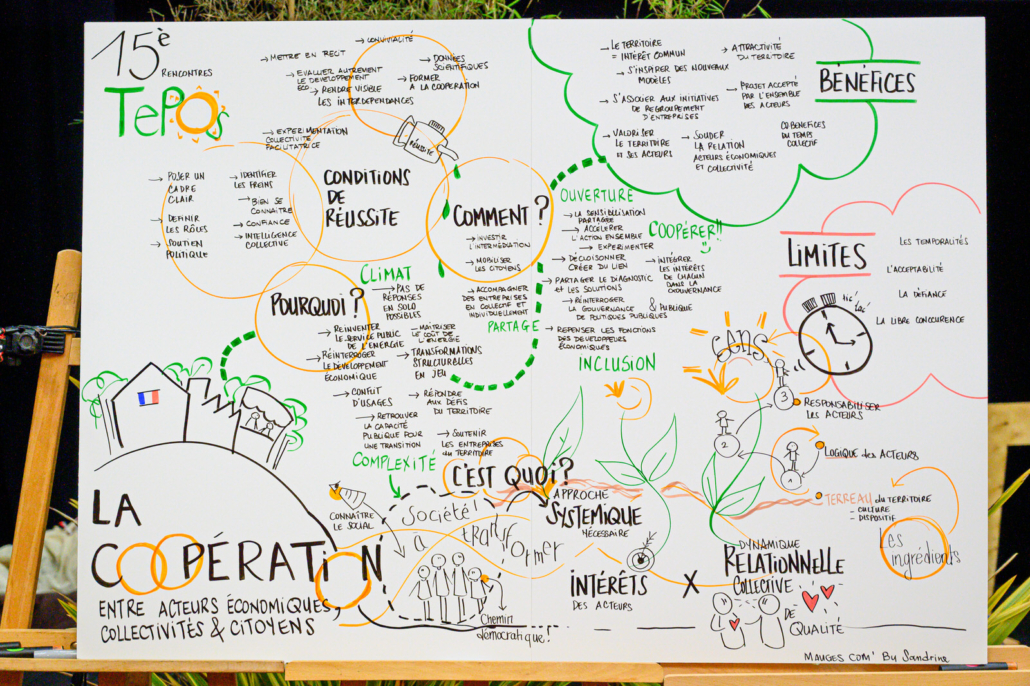 15è
RENCONTRES
TEPOS
→ METTRE EN RÉCIT
→ CONVIVIALITÉ
→ EVALUER AUTREMENT
LE DEVELOPPEMENT
ECO
→ RENDRE VISIBLE
LES INTERDEPENDANCES
→ DONNÉES
SCIENTIFIQUES
→ FORMER
A LA COOPERATION
→ EXPERIMENTATION
COLLECTIVITÉ
FACILITATRICE
RÉUSSITE
→ POSER UN
CADRE
CLAIR
→ DEFINIR
LES RÔLES
→ SOUTIEN
POLITIQUE
→ IDENTIFIER
LES FREINS
→ BIEN SE
CONNAITRE
→ CONFIANCE
→ INTELLIGENCE
COLLECTIVE
CONDITIONS
DE
RÉUSSITE
COMMENT ?
→ INVESTIR
L'INTERMÉDIATION
→ MOBILISER
LES CITOYENS
→ ACCOMPAGNER
DES ENTREPRISES
EN COLLECTIF ET
INDIVIDUELLEMENT
PARTAGE
OUVERTURE
→ LA SENSIBILISATION
PARTAGER
→ ACCÉLERER
L'ACTION ENSEMBLE
→ EXPERIMENTER
→ DÉCLOISONNER
CRÉER DU LIEN
→ PARTAGER LE DIAGNOSTIC
ET LES SOLUTIONS
→ RÉINTERROGER
LA GOUVERNANCE & PUBLIQUE
DE POLITIQUES PUBLIQUES
→ REPENSER LES FONCTIONS
DES DEVELOPEURS
ÉCONOMIQUES
COOPÉRER!!
→ INTÉGRER
LES INTÉRÊTS
DE CHACUN
DANS LA
GOUVERNANCE
INCLUSION
BÉNÉFICES
→ LE TERRITOIRE
= INTÉRÊT COMMUN
→ S'INSPIRER DES NOUVEAUX
MODÈLES
→ S'ASSOCIER AUX INITIATIVES
DE REGROUPEMENT
D'ENTREPRISES
→ VALORISER
LE TERRITOIRE
ET SES ACTEURS
→ SOUDER
LA RELATION
ACTEURS ÉCONOMIQUES
ET COLLECTIVITÉ
→ ATTRACTIVITÉ
DU TERRITOIRE
→ PROJET ACCEPTÉ
PAR L'ENSEMBLE
DES ACTEURS
COBENEFICES
DU TEMPS
COLLECTIF
LIMITES
LES TEMPORALITÉS
L'ACCEPTABILITÉ
LA DÉFIANCE
LA LIBRE CONCURENCE
TIC TAC
POURQUOI ?
CLIMAT
→ PAS DE
RÉPONSES
EN SOLO
POSSIBLES
→ RÉINVENTER
LE SERVICE PUBLIC
DE L'ÉNERGIE
→ MAÎTRISER
LE COÛT DE
L'ÉNERGIE
→ RÉINTERROGER
LE DÉVELOPPEMENT
ÉCONOMIQUE
→ TRANSFORMATIONS
STRUCTURELLES
EN JEU
→ CONFLIT
D'USAGES
→ RÉPONDRE
AUX DÉFIS
DU TERRITOIRE
→ RETROUVER
LA CAPACITÉ
PUBLIQUE POUR
UNE TRANSITION
→ SOUTENIR
LES ENTREPRISES
DU TERRITOIRE
COMPLEXITÉ
C'EST QUOI ?
CONNAÎTRE
LE SOCIAL
Société
à
transformer
Chemin
démocratique !
APPROCHE
SYSTÉMIQUE
NÉCESSAIRE
INTÉRÊTS
DES ACTEURS
X
DYNAMIQUE
RELATIONNELLE
COLLECTIVE
DE
QUALITÉ
SENS
3
→ RESPONSABILISER
LES ACTEURS
2
1
LOGIQUE des ACTEURS
TERREAU du TERRITOIRE
= CULTURE
= DISPOSITIF
Les
ingrédients
LA
COOPÉRATION
ENTRE ACTEURS ÉCONOMIQUES,
COLLECTIVITÉS & CITOYENS
MAUGES COM' By Sandrine